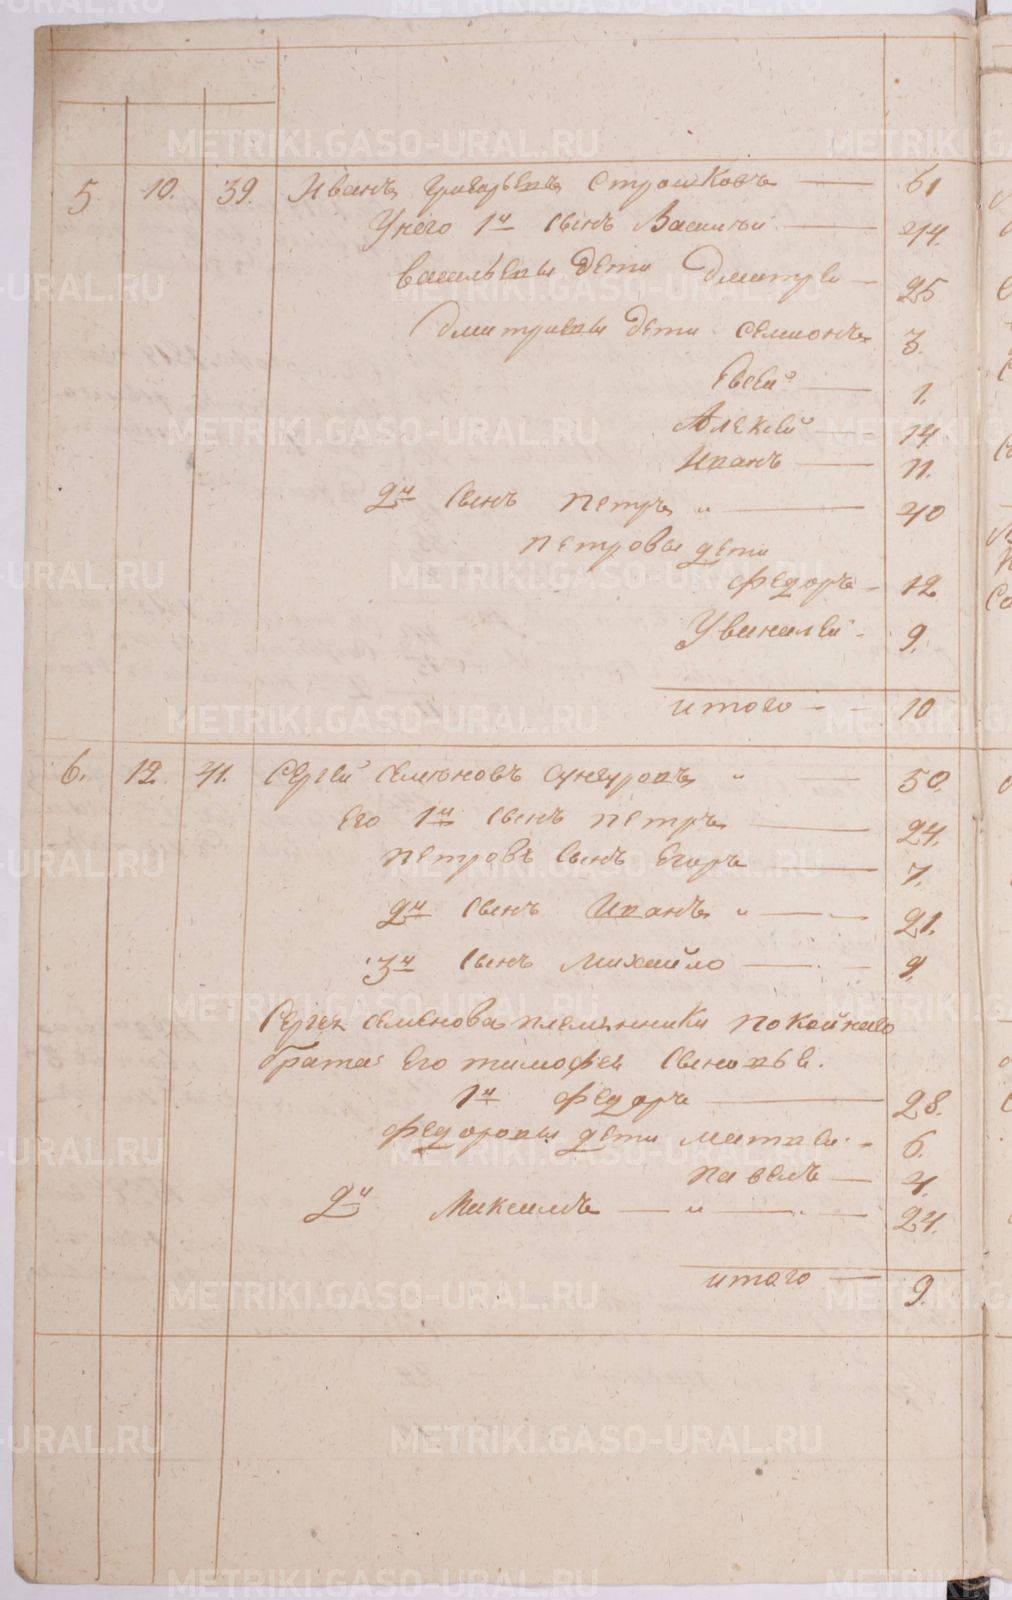 5. 10. 39. Иванъ Григорьевъ Строшковъ — 61
У него 1й сынъ Василей — 44.
Васильевы дети Дмитрей — 25
Дмитриевы дети Семионъ 3.
Евсей — 1.
Алексей — 14
Иванъ — 11.
2й сынъ Петръ " — 40
Петровы дети
Федоръ — 12
Увиналей - 9.
итого - - 10
6. 12. 41. Сергей Семионовъ Сунгуровъ " — 50.
Его 1й сынъ Петръ — 24.
Петровъ сынъ Егоръ — 7.
2й сынъ Иванъ " — 21.
3й сынъ Михайло — 9.
Сергея Семенова племянники покойнаго
брата Его Тимофея сыновье.
1й Федоръ — 28.
Федоровы дети Матвей - 6.
Павелъ — 4.
2й Максимъ — " — 24.
итого — 9.
METRIKI.GASO-URAL.RU